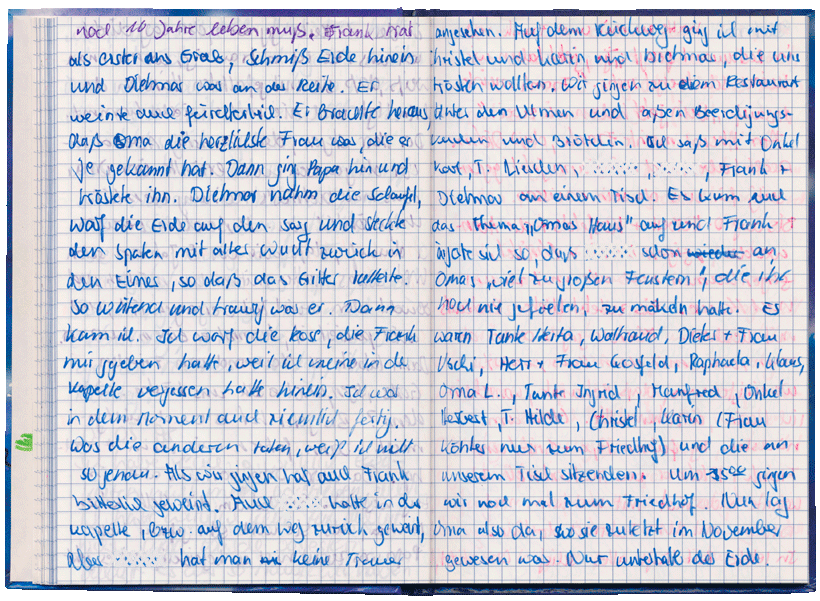 noch 16 Jahre leben muß. Frank trat
als erster ans Grab, schmiß Erde hinein
und Dietmar war an der Reihe. Er
weinte auch fürchterlich. Er brachte heraus,
daß Oma die herzlichste Frau war, die er
je gekannt hat. Dann ging Papa hin und
tröstete ihn. Dietmar nahm die Schaufel,
warf die Erde auf den Sarg und steckte
den Spaten mit aller Wucht zurück in
den Eimer, so daß das Gitter ratterte.
So wütend und traurig war er. Dann
kam ich. Ich warf die Rose, die Frank
mir gegeben hatte, weil ich meine in der
Kapelle vergessen hatte hinein. Ich war
in dem Moment auch ziemlich fertig.
Was die anderen taten, weiß ich nicht
so genau. Als wir gingen hat auch Frank
bitterlich geweint. Auch hatte in der
Kapelle, bzw. auf dem Weg zurück geweint,
Aber hat man keine Trauer
angesehen. Auf dem Rückweg ging ich mit
Christel und Karin und Dietmar, die uns
trösten wollten. Wir gingen zu dem Restaurant
Unter den Ulmen und aßen Beerdigungs-
kuchen und Brötchen. Ich saß mit Onkel
Karl, T. Lieschen, Frank +
Dietmar an einem Tisch. Es kam auch
das Thema "Omas Haus" auf und Frank
ärgerte sich so, daß schon wieder an
Omas "viel zu großen Fenstern", die ihr
noch nie gefielen, zu mäkeln hatte. Es
warn Tante Herta, Waltraud, Dieter + Frau
Uschi, Herr + Frau Cosfeld, Raphaela, Klaus,
Oma L., Tante Ingrid, Manfred, Onkel
Herbert, T. Hilde, Christel, Karin (Frau
Köhler nur zum Friedhof) und die an
unserem Tisch sitzenden. Um gingen
wir noch mal zum Friedhof. Nun lag
Oma also da, wo sie zuletzt im November
gewesen war. Nur unterhalb der Erde.